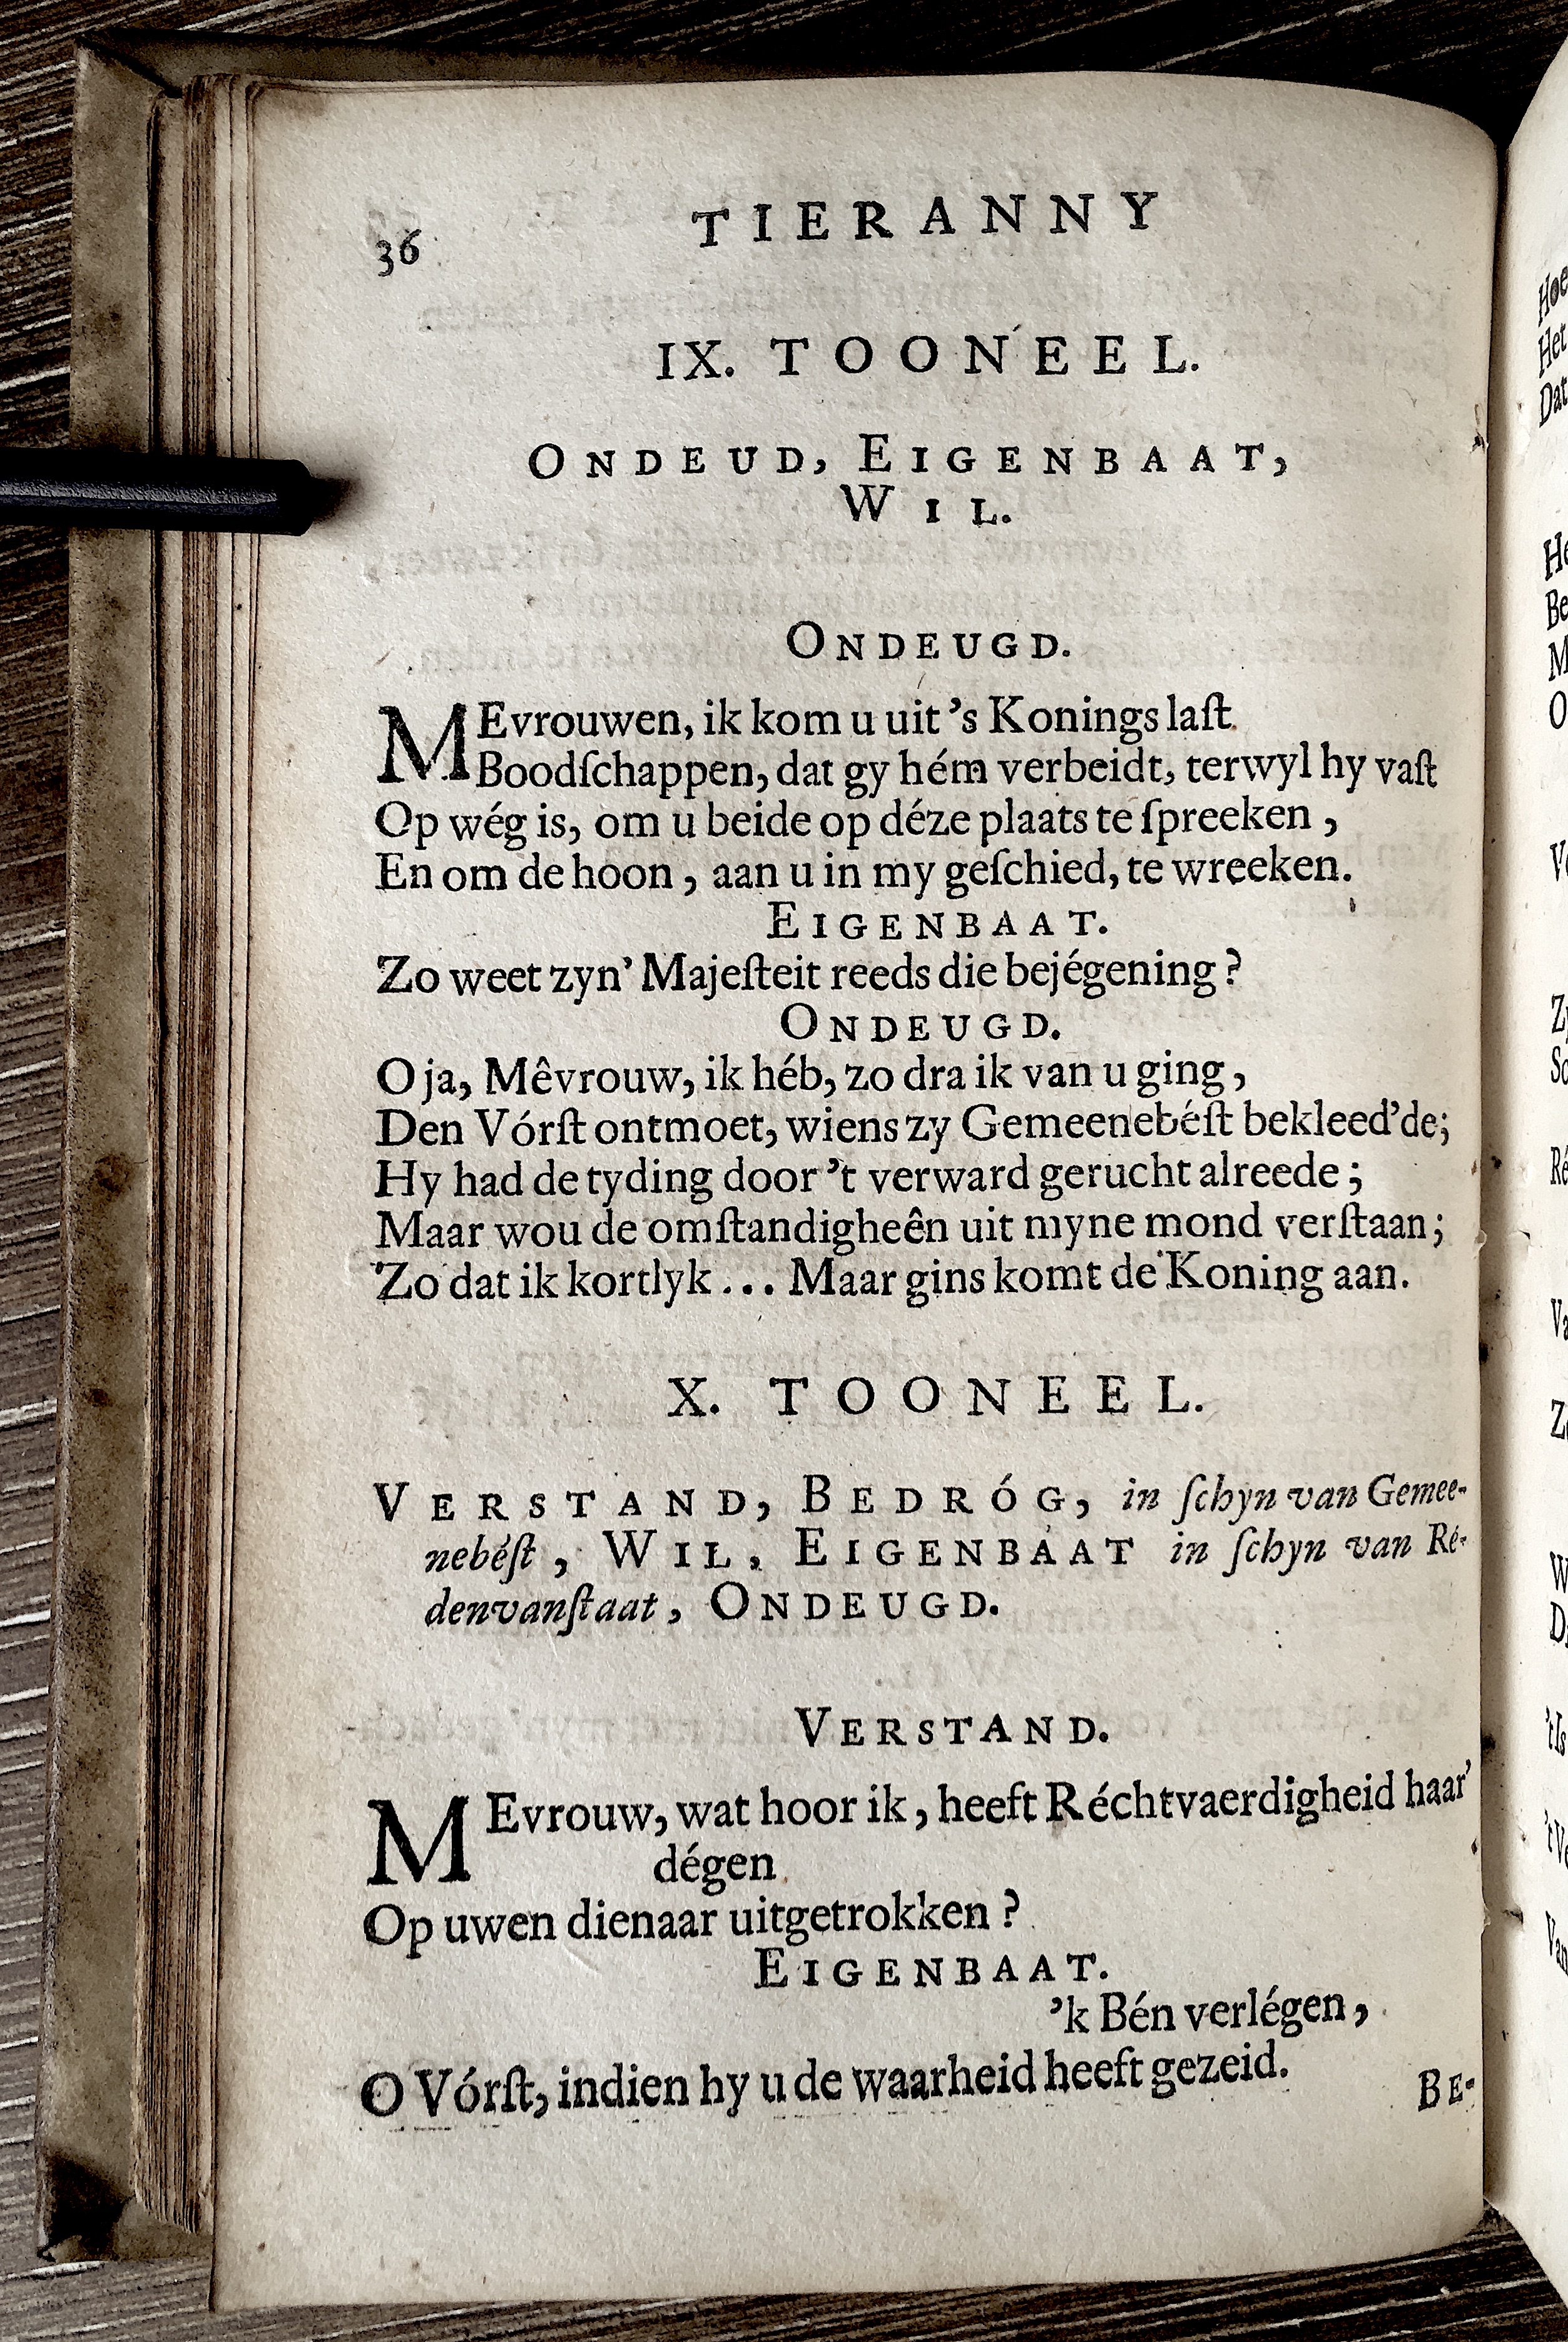 36 TIERANNY
IX. TOONEEL.
ONDEUD, EIGENBAAT,
WIL.
ONDEUGD.
MEvrouwen, ik kom u uit 's Konings laſt
Boodſchappen, dat gy hém verbeidt, terwyl hy vaſt
Op wég is, om u beide op déze plaats te ſpreeken,
En om de hoon, aan u in my geſchied, te wreeken.
EIGENBAAT.
Zo weet zyn' Majeſteit reeds die bejégening?
ONDEUGD.
O ja, Mêvrouw, ik héb, zo dra ik van u ging,
Den Vórſt ontmoet, wiens zy Gemeenebéſt bekleed'de;
Hy had de tyding door 't verward gerucht alreede;
Maar wou de omſtandigheên uit myne mond verſtaan;
Zo dat ik kortlyk... Maar gins komt de Koning aan.
X. TOONEEL.
VERSTAND, BEDRÓG, in ſchyn van Gemee-
nebéſt, WIL, EIGENBAAT in ſchyn van Ré-
denvanſtaat, ONDEUGD.
VERSTAND.
MEvrouw, wat hoor ik, heeft Réchtvaerdigheid haar'
dégen
Op uwen dienaar uitgetrokken?
EIGENBAAT.
'k Bén verlégen,
O Vórſt, indien hy u de waarheid heeft gezeid.
BE-